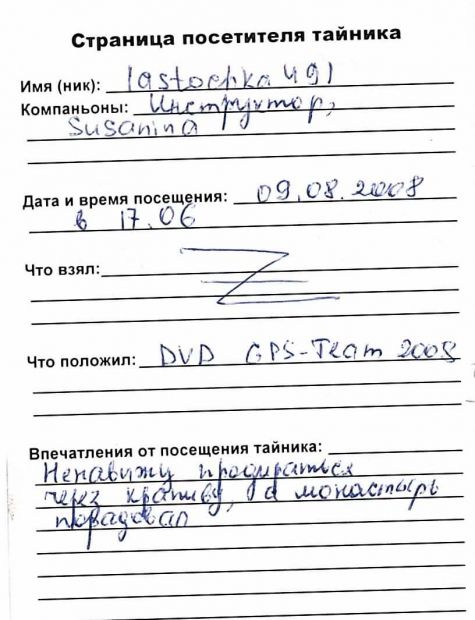 Страница посетителя тайника
Имя (ник): lastochka491
Компаньоны: Инструктор,
Susanina
Дата и время посещения: 09.08.2008
в 17.06
Что взял:
Что положил: DVD GPS-Team 2008
Впечатления от посещения тайника:
Ненавижу продираться
через крапиву, а монастырь
порадовал